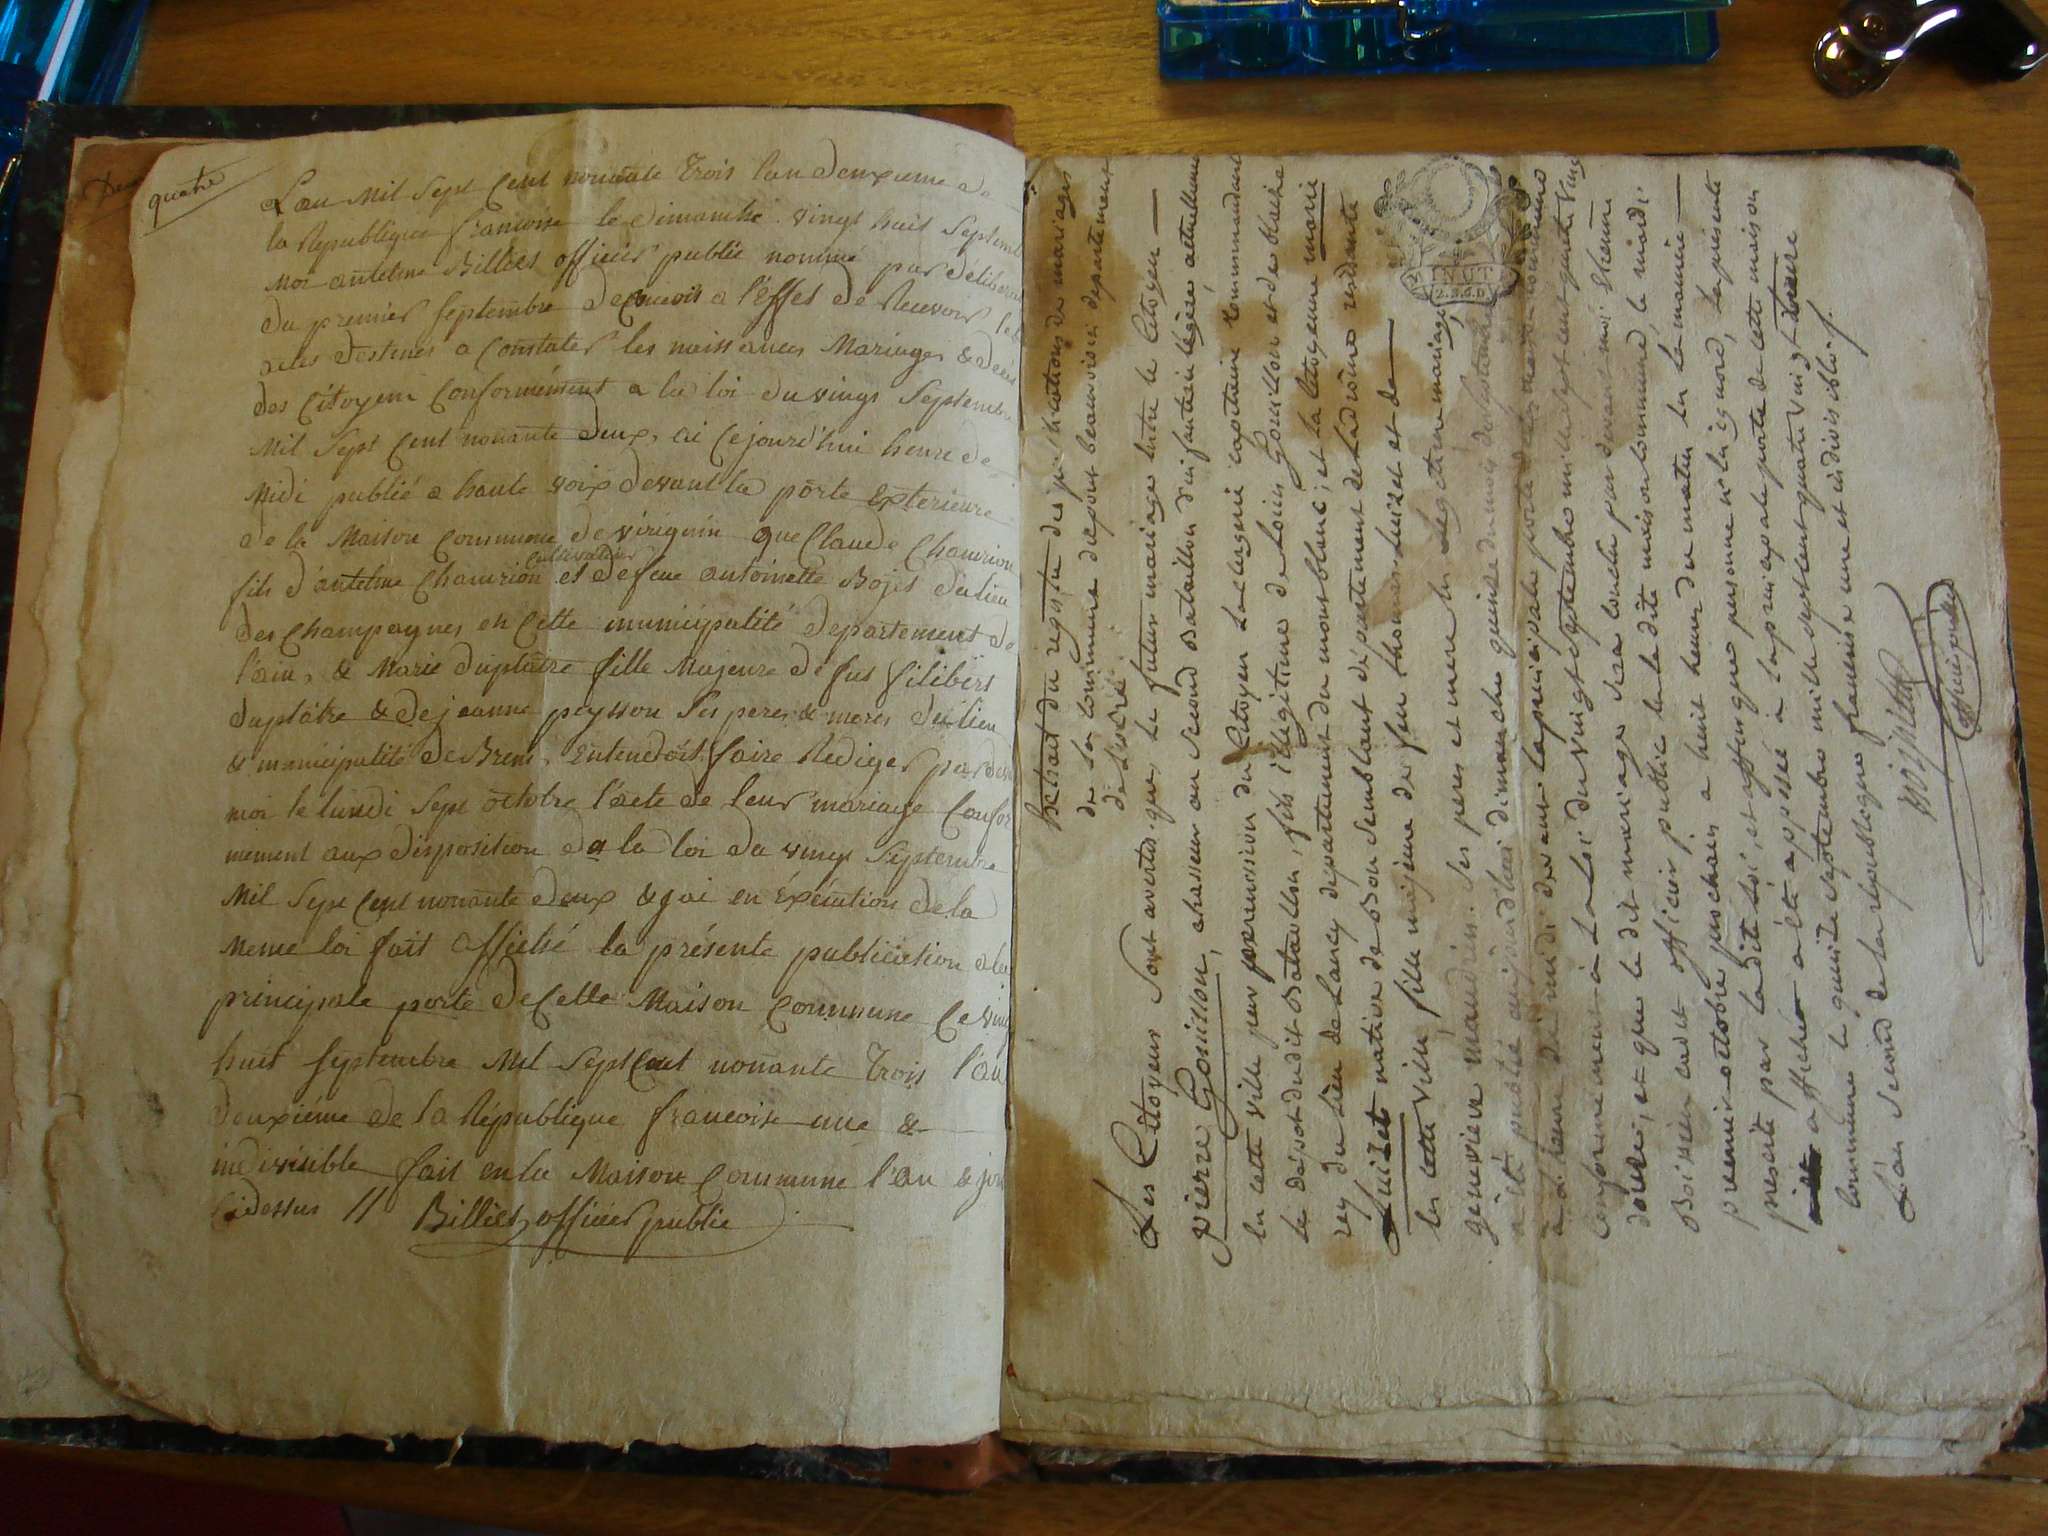 quatre
L'an Mil Sept Cent nonante Trois l'an deuxieme de
la Republique francoise le dimanche vingt huit Septemb
moi antelme Billiet officier public nommé par déliberat
du premier Septembre a l'Effet de Recevoir les
actes destines a Constater les naissances Mariages & deces
des Citoyens Conformément a la loi du vingt Septembre
Mil Sept Cent nonante deux, ai cejourd'hui heure de
Midi publié a haute voix devant la porte Exterieure
de la Maison Commune de virignin que Claude Chamrion
cultivateur
fils d'antelme Chamrion et de feue antoinette Bojet du lieu
des Champagnes en Cette municipalité departement de
l'ain, & Marie duplatre fille Majeure de fut filibert
duplâtre & de jeanne peysson Ses peres & meres du lieu
& municipalité de Brens, Entendoit faire Rediger par dev
moi le lundi Sept octobre l'acte de leur mariage Confor
mement aux disposition de la loi du vingt Septembre
Mil Sept Cent nonante deux & j'ai en éxécution de la
meme loi fait affiché la présente publication a la
principale porte de Cette Maison Commune Ce ving
huit Septembre Mil Sept Cent nonante Trois l'an
deuxiéme de la République francoise une &
indivisible fait en la Maison Commune l'an & jour
Cidessus // Billiet officier public
Extrait du registre des publications de mariages
de la Commune du pont beauvoisin departement
de l'isère
Les Citoyens Sont avertis que le futur mariage entre le Citoyen
pierre Gouillon, chasseur au Second Bataillon d'infanterie légère, actuellement
en cette ville par permission du Citoyen capitaine Commandant
le dépôt dudit Bataillon, fils illégitime de Louis Gouillon et de
du lieu de Lancy departement du mont blanc; et la Citoyenne marie
Juillet native de département de la drôme residante
en cette ville, fille majeure de feu thomas Juillet et de
genevieve mandrin. Ses peres et mere
a été publié aujourd'hui dimanche quinze du mois de Septembre
à l'heure de midi devant la principale porte de la maison commune
Conformement à la Loi du vingt Septembre mille sept cent quatre Ving
douze, et que le dit mariage sera Conclu par devant moi Etienne
Boissier audit officier public de la dite maison Commune, le mardi
premier octobre prochain a huit heures du matin en la maniere
presite par ladite Loi, et affin que personne n'en ignore, la présente
a affichée a été apposée à la principale porte de cette maison
Commune le quinze Septembre mille sept cent quatre vingt treize
L'an Second de la république francaise une et indivisible.
Boissier
officier public